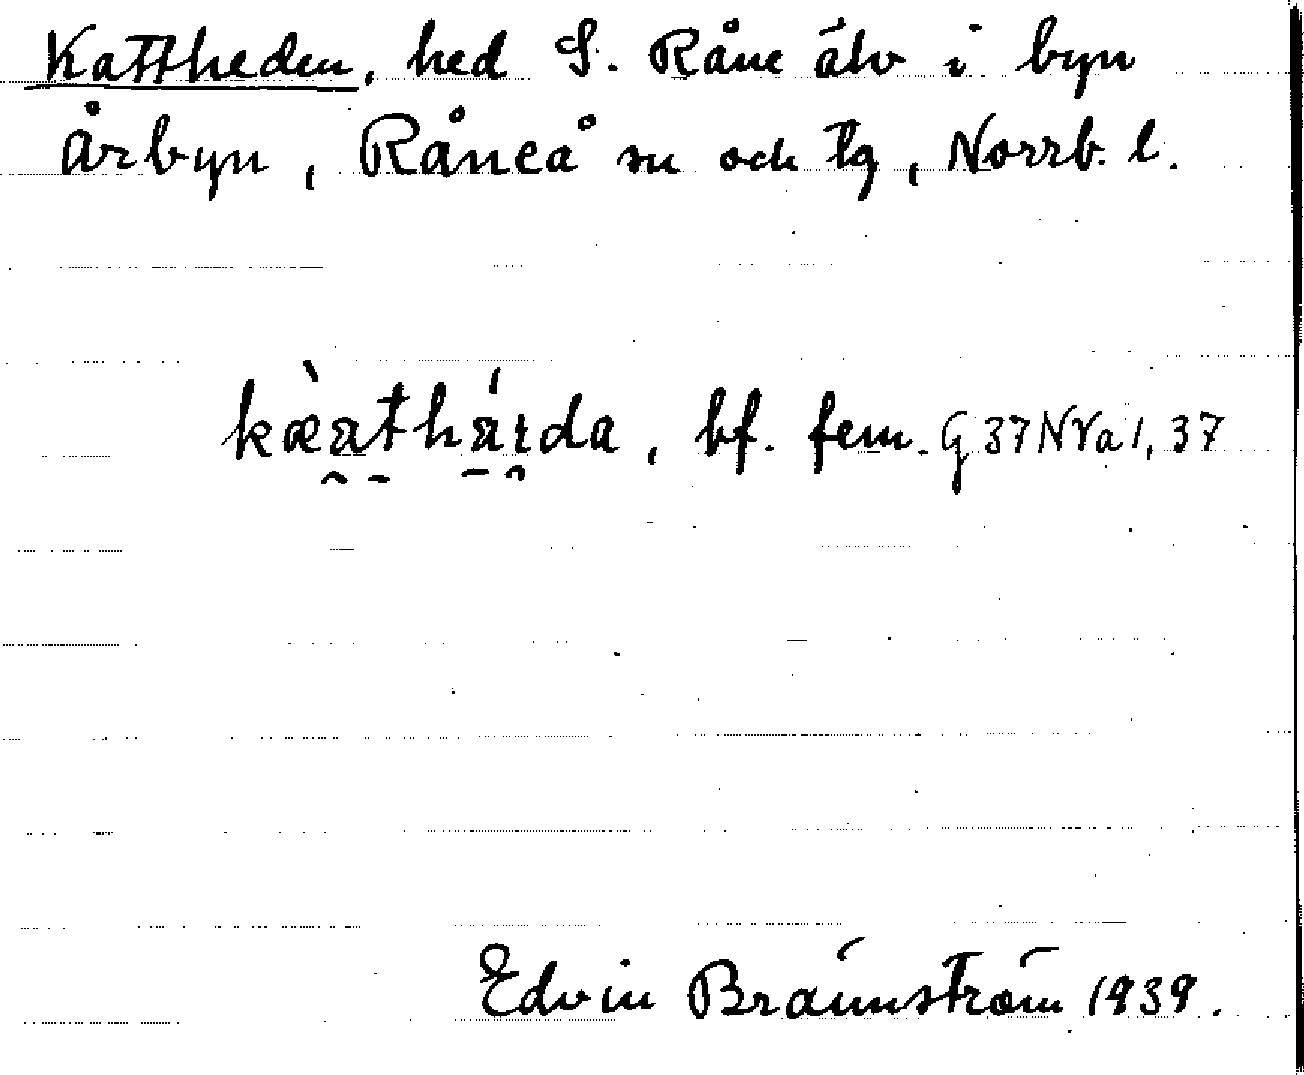 Kattheden, hed S. Råne älv i byn
Årbyn, Råneå sn och tg, Norrb. l.
kæ̀at̯hárda, bf. fem. G 37 N Va 1, 37
Edvin Brännström 1939.